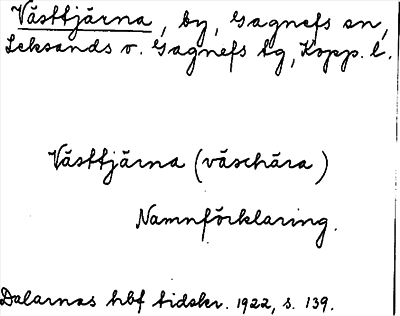 Västtjärna, by, Gagnefs sn,
Leksands o. Gagnefs tg, Kopp. l.
Västtjärna (väschära)
Namnförklaring.
Dalarnas hbf tidskr. 1922, s. 139.